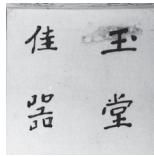 玉堂
佳器